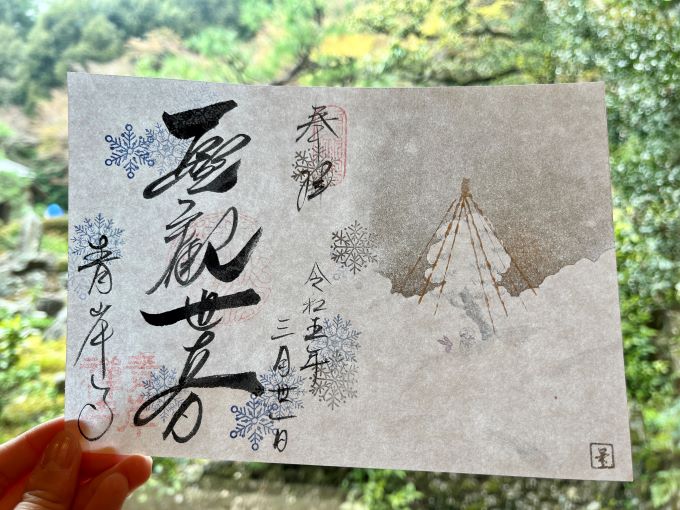 奉拝
令和五年
三月廿一日
聖観世音
青岸寺